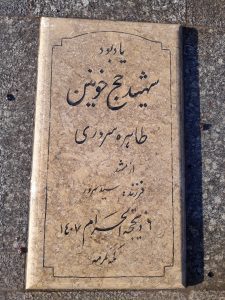 یادبود
شهید حج خونین
طاهره سروری
فرزند سید سرور
۶ ذیحجة الحرام ۱۴۰۷
مکه مکرمه